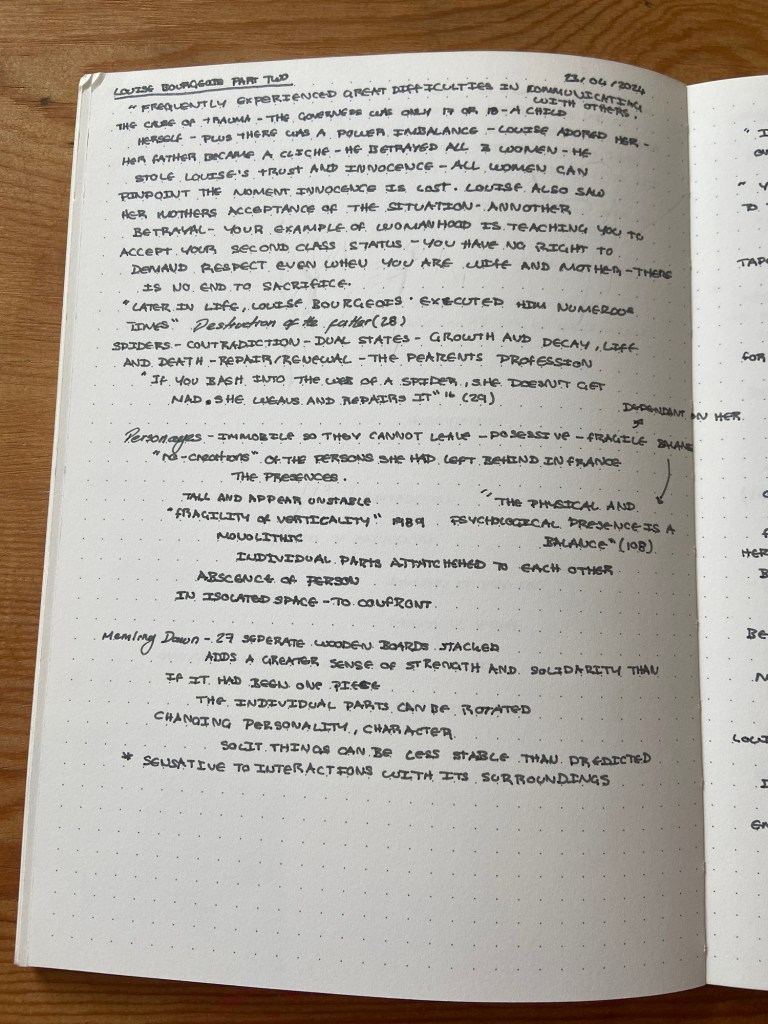 LOUISE BOURGEOIS PART TWO 23/04/2024
"FREQUENTLY EXPERIENCED GREAT DIFFICULTIES IN COMMUNICATING
WITH OTHERS.
THE CAUSE OF TRAUMA - THE GOVERNESS WAS ONLY 17 OR 18 - A CHILD
HERSELF - PLUS THERE WAS A POWER IMBALANCE - LOUISE ADORED HER -
HER FATHER BECAME A CLICHE - HE BETRAYED ALL 3 WOMEN - HE
STOLE LOUISE'S TRUST AND INNOCENCE - ALL WOMEN CAN
PINPOINT THE MOMENT INNOCENCE IS LOST. LOUISE ALSO SAW
HER MOTHERS ACCEPTANCE OF THE SITUATION - ANNOTHER
BETRAYAL - YOUR EXAMPLE OF WOMANHOOD IS TEACHING YOU TO
ACCEPT YOUR SECOND CLASS STATUS - YOU HAVE NO RIGHT TO
DEMAND RESPECT EVEN WHEN YOU ARE WIFE AND MOTHER - THERE
IS NO END TO SACRIFICE.
"LATER IN LIFE, LOUISE BOURGEOIS EXECUTED HIM NUMEROUS
TIMES" Destruction of the father (28)
SPIDERS - CONTRADICTION - DUAL STATES - GROWTH AND DECAY, LIFE
AND DEATH - REPAIR/RENEWAL - THE PEARENTS PROFESSION
"IF YOU BASH INTO THE WEB OF A SPIDER, SHE DOESN'T GET
MAD. SHE WEAVS AND REPAIRS IT" 16 (29)
DEPENDANT ON HER
Personages - IMMOBILE SO THEY CANNOT LEAVE - POSESSIVE - FRAGILE BALANCE
"RE-CREATIONS" OF THE PERSONS SHE HAD LEFT BEHIND IN FRANCE
THE PRESENCES.
TALL AND APPEAR UNSTABLE
"THE PHYSICAL AND
"FRAGILITY OF VERTICALITY" 1989 PSYCHOLOGICAL PRESENCE IS A
MONOLITHIC BALANCE" (108)
INDIVIDUAL PARTS ATTATCHEHED TO EACH OTHER
ABSCENCE OF PERSON
IN ISOLATED SPACE - TO CONFRONT
Memling Dawn - 27 SEPERATE WOODEN BOARDS STACKED
ADDS A GREATER SENSE OF STRENGTH AND SOLIDARITY THAN
IF IT HAD BEEN ONE PIECE
THE INDIVIDUAL PARTS CAN BE ROTATED
CHANGING PERSONALITY, CHARACTER
SOLIT THINGS CAN BE LESS STABLE THAN PREDICTED
* SENSATIVE TO INTERACTIONS WITH ITS SURROUNDINGS
TAPE
FOR
HER
BE